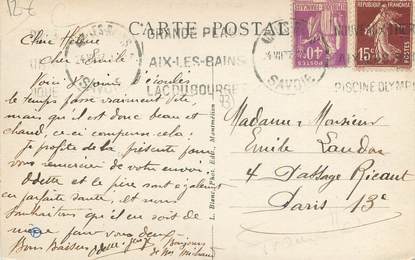 12€
CARTE POSTALE
GRANDE PLA
AIX-LES-BAINS
LAC DU BOURGET
SAVOIE
40c
POSTES
15c
PISCINE OLYMP
Chère Hélène
Cher Emile
le temps passe vraiment vite
mais qu'il est donc beau et
chaud, ce ci compense cela.
Je profite de la présente pour
vous remercier de votre envoi.
Odette et le père sont également
en parfaite santé, et nous
souhaitons qu'il en soit de
même pour vous deux.
Bons Baisers
Bonjours
de Mme
Madame Monsieur
Emile Laudon
4 Passage Ricaut
Paris 13e
L. Blanc, Phot. Edit., Montmélian